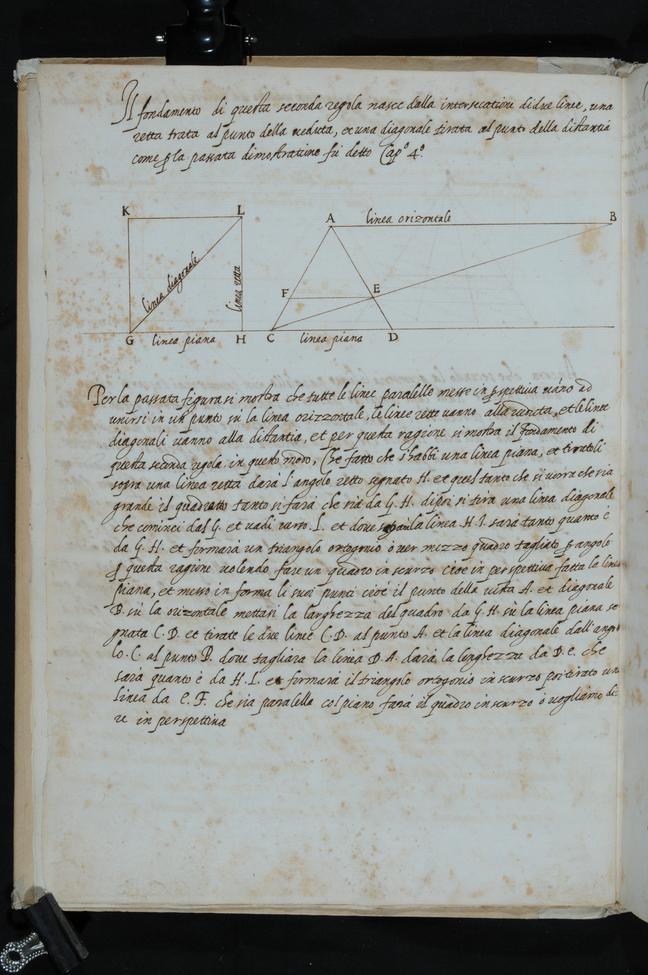 Il fondamento di questa seconda regola nasce dalla intersecatione di due linee, una
retta tirata al punto della veduta, et una diagonale tirata al punto della distantia
come p la passata dimostratione fù detto Cap.º 4.º
K L A linea orizontale B
linea diagonale
linea retta
F E
G linea piana H C linea piana D
Per la passata figura si mostra che tutte le linee paralelle messe in pspettiva vano ad
unirsi in un punto sù la linea orizzontale, le linee rette vanno alla veduta, et le linee
diagonali vanno alla distantia, et per questa ragione si mostra il fondamento di
questa seconda regola in questo modo, Che fatto che s'habbi una linea piana, et tiratoli
sopra una linea retta darà l'angolo retto segnato H. et quel tanto che si vorra che sia
grande il quadratto tanto si farà che sia da G. H. dipoi si tira una linea diagonale
che cominci dal G. et vadi verso L. et dove la linea H. L. sarà tanto quanto è
da G. H. et formarà un triangolo ortogonio ò ver mezzo quadro tagliato p angolo
p questa ragione volendo fare un quadro in scurzo cioè in perspettiva fatta la linea
piana, et messo in forma li suoi punti cioè il punto della vista A. et diagonale
B. sù la orizontale mettasi la larghezza del quadro da G. H. sù la linea piana se
gnata C. D. et tirate le due linie C. D. al punto A. et la linea diagonale dall'ango
lo C. al punto B. dove tagliara la linea D. A. darà la longhezza da D. E. che
sarà quanto è da H. L. et formarà il triangolo ortogonio in scurzo poi tirato una
linea da E. F. che sia paralella col piano farà il quadro in scurzo ò vogliamo di
re in perspettiva